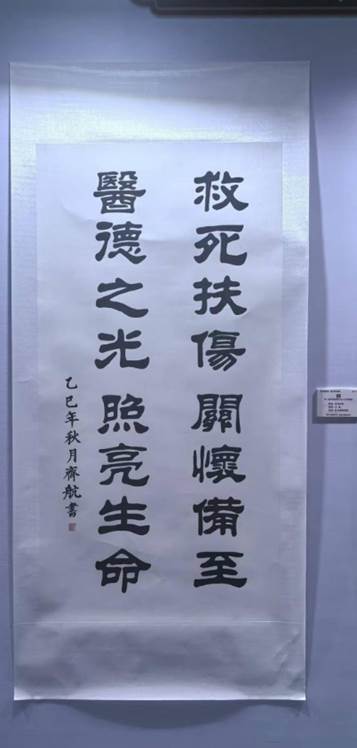 救死扶傷 關懷備至
醫德之光 照亮生命
乙巳年秋月齊航書